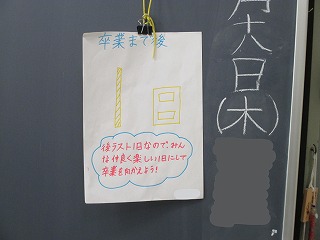 卒業まで後
1日
後ラスト1日なので、みん
な仲良く楽しい1日にして
卒業を向かえよう!
月十八日(木)